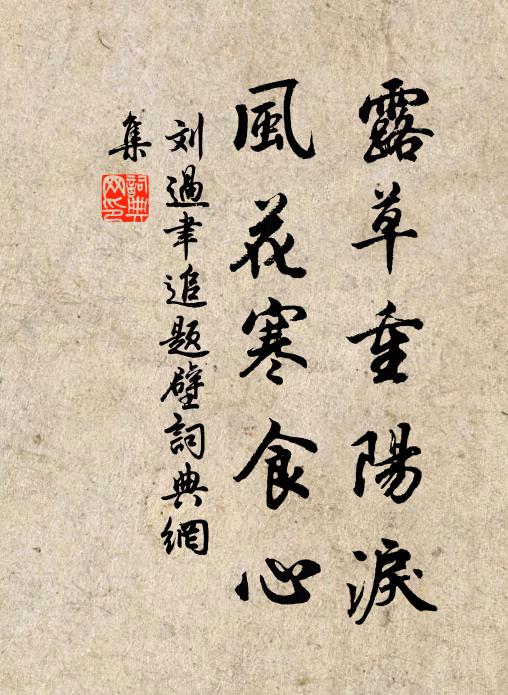 露草重陽淚
風花寒食心
刘過聿追题壁詞典網
集
詞典網印